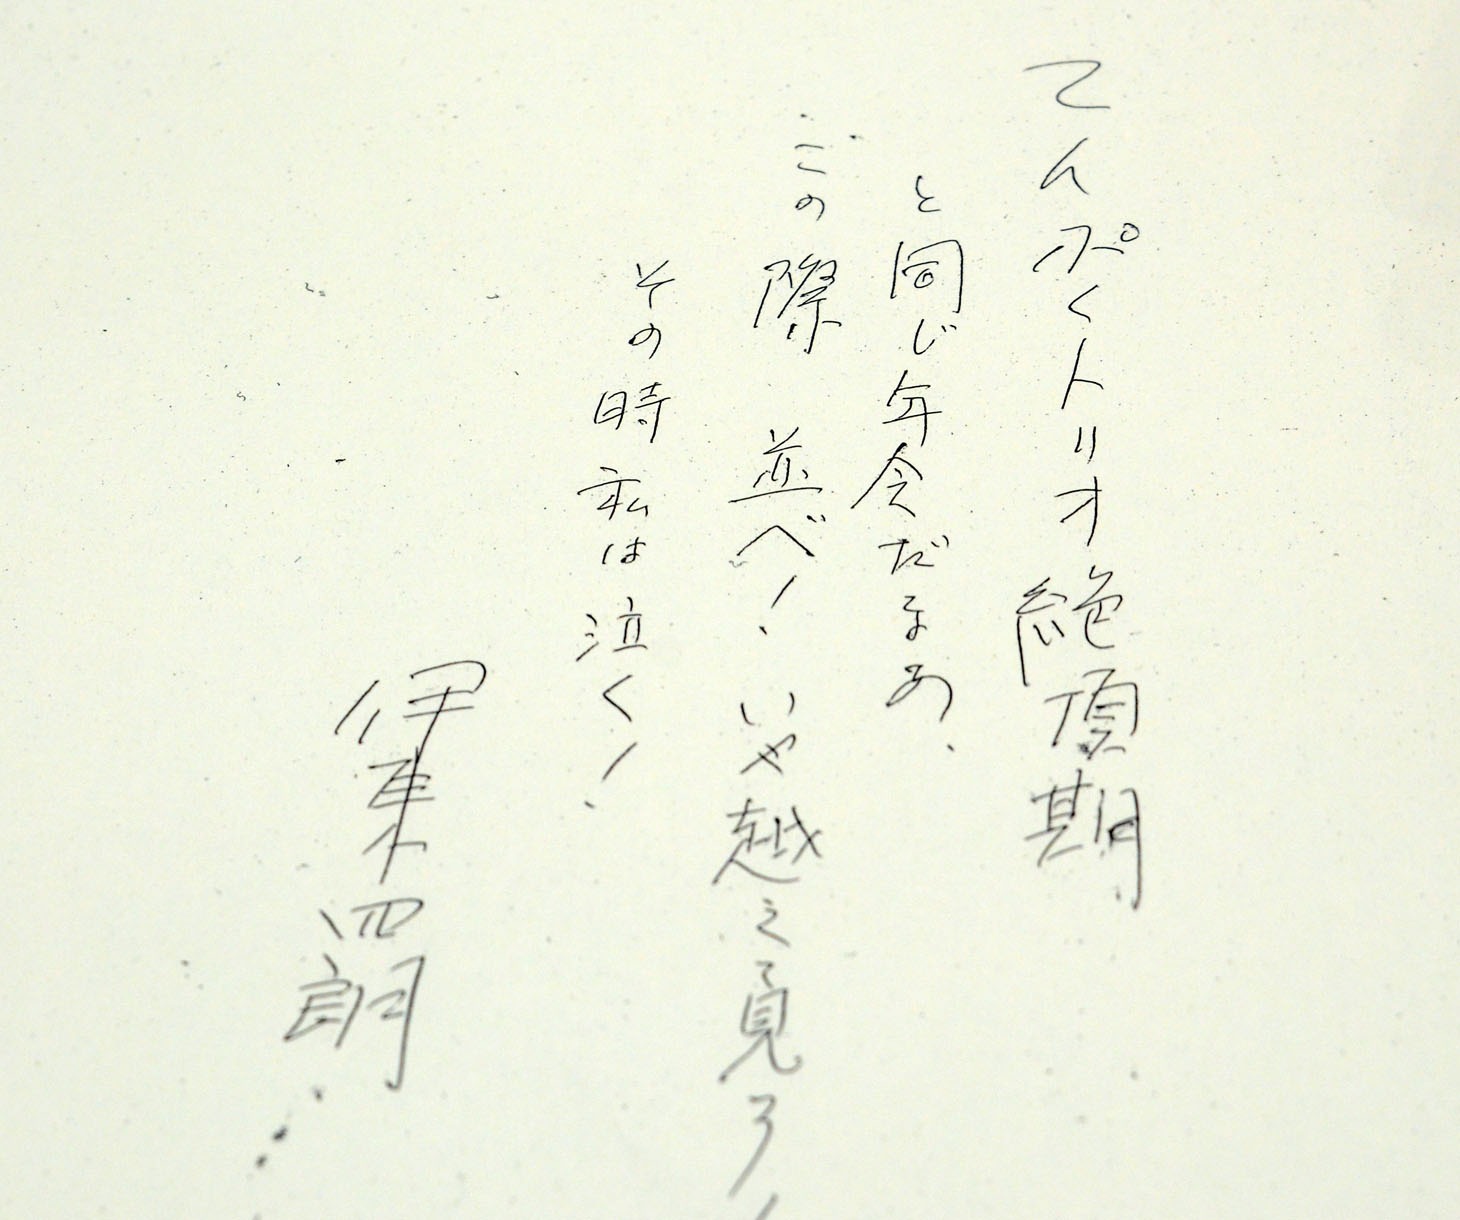 てんぷくトリオ絶頂期
と同じ年令だなあ、
この際 並べ！いや越えて見ろ！
その時私は泣く！
伊東四朗